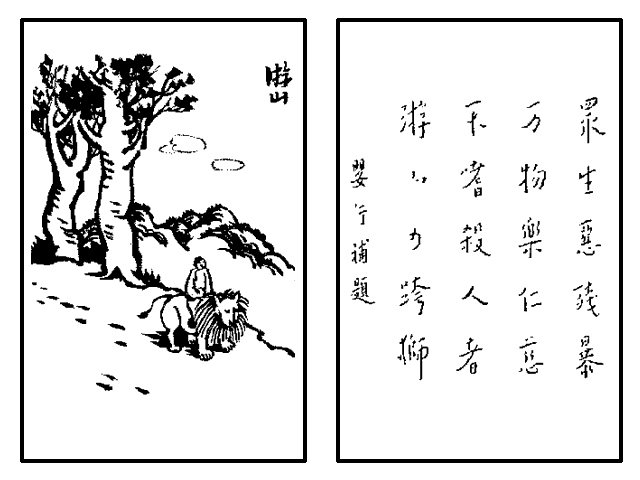 游山
眾生惡残暴
万物樂仁慈
不嗜殺人者
游山可跨獅
嬰行補題